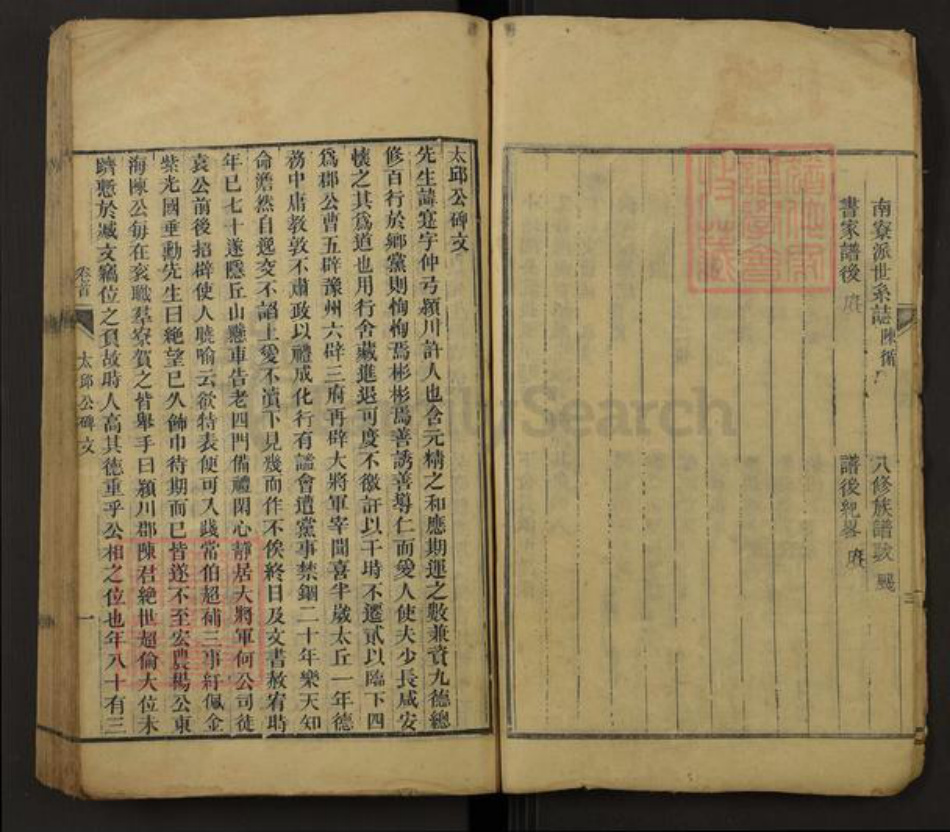 南寮派世系誌 陳循
八修族譜跋
書家譜後
譜後紀畧
三
太邱公碑文
先生諱寔字仲弓潁川許人也含元精之和應期運之數兼資九德總
修百行於鄉黨則恂恂焉彬彬焉善誘善導仁而愛人使夫少長咸安
懷之其爲道也用行舍藏進退可度不徼訐以干時不遷貳以臨下四
爲郡公曹五辟豫州六辟三府再辟大將軍宰聞喜半歲太丘一年德
務中庸教敦不肅政以禮成化行有謐會遭黨事禁錮二十年樂天知
命澹然自逸交不謟上愛不瀆下見幾而作不俟終日及文書赦宥時
年已七十遂隱丘山懸車告老四門備禮閑心靜居大將軍何公司徒
袁公前後招辟使人曉喻云欲特表便可入踐常伯超補三事紆佩金
紫光國垂勳先生曰絶望已久飾巾待期而已皆遂不至宏農楊公東
海陳公每在衮職羣寮賀之皆舉手曰潁川郡陳君絶世超倫大位未
躋慙於臧文竊位之負故時人高其德重乎公相之位也年八十有三
卷首
太邱公碑文
一
FamilySearch